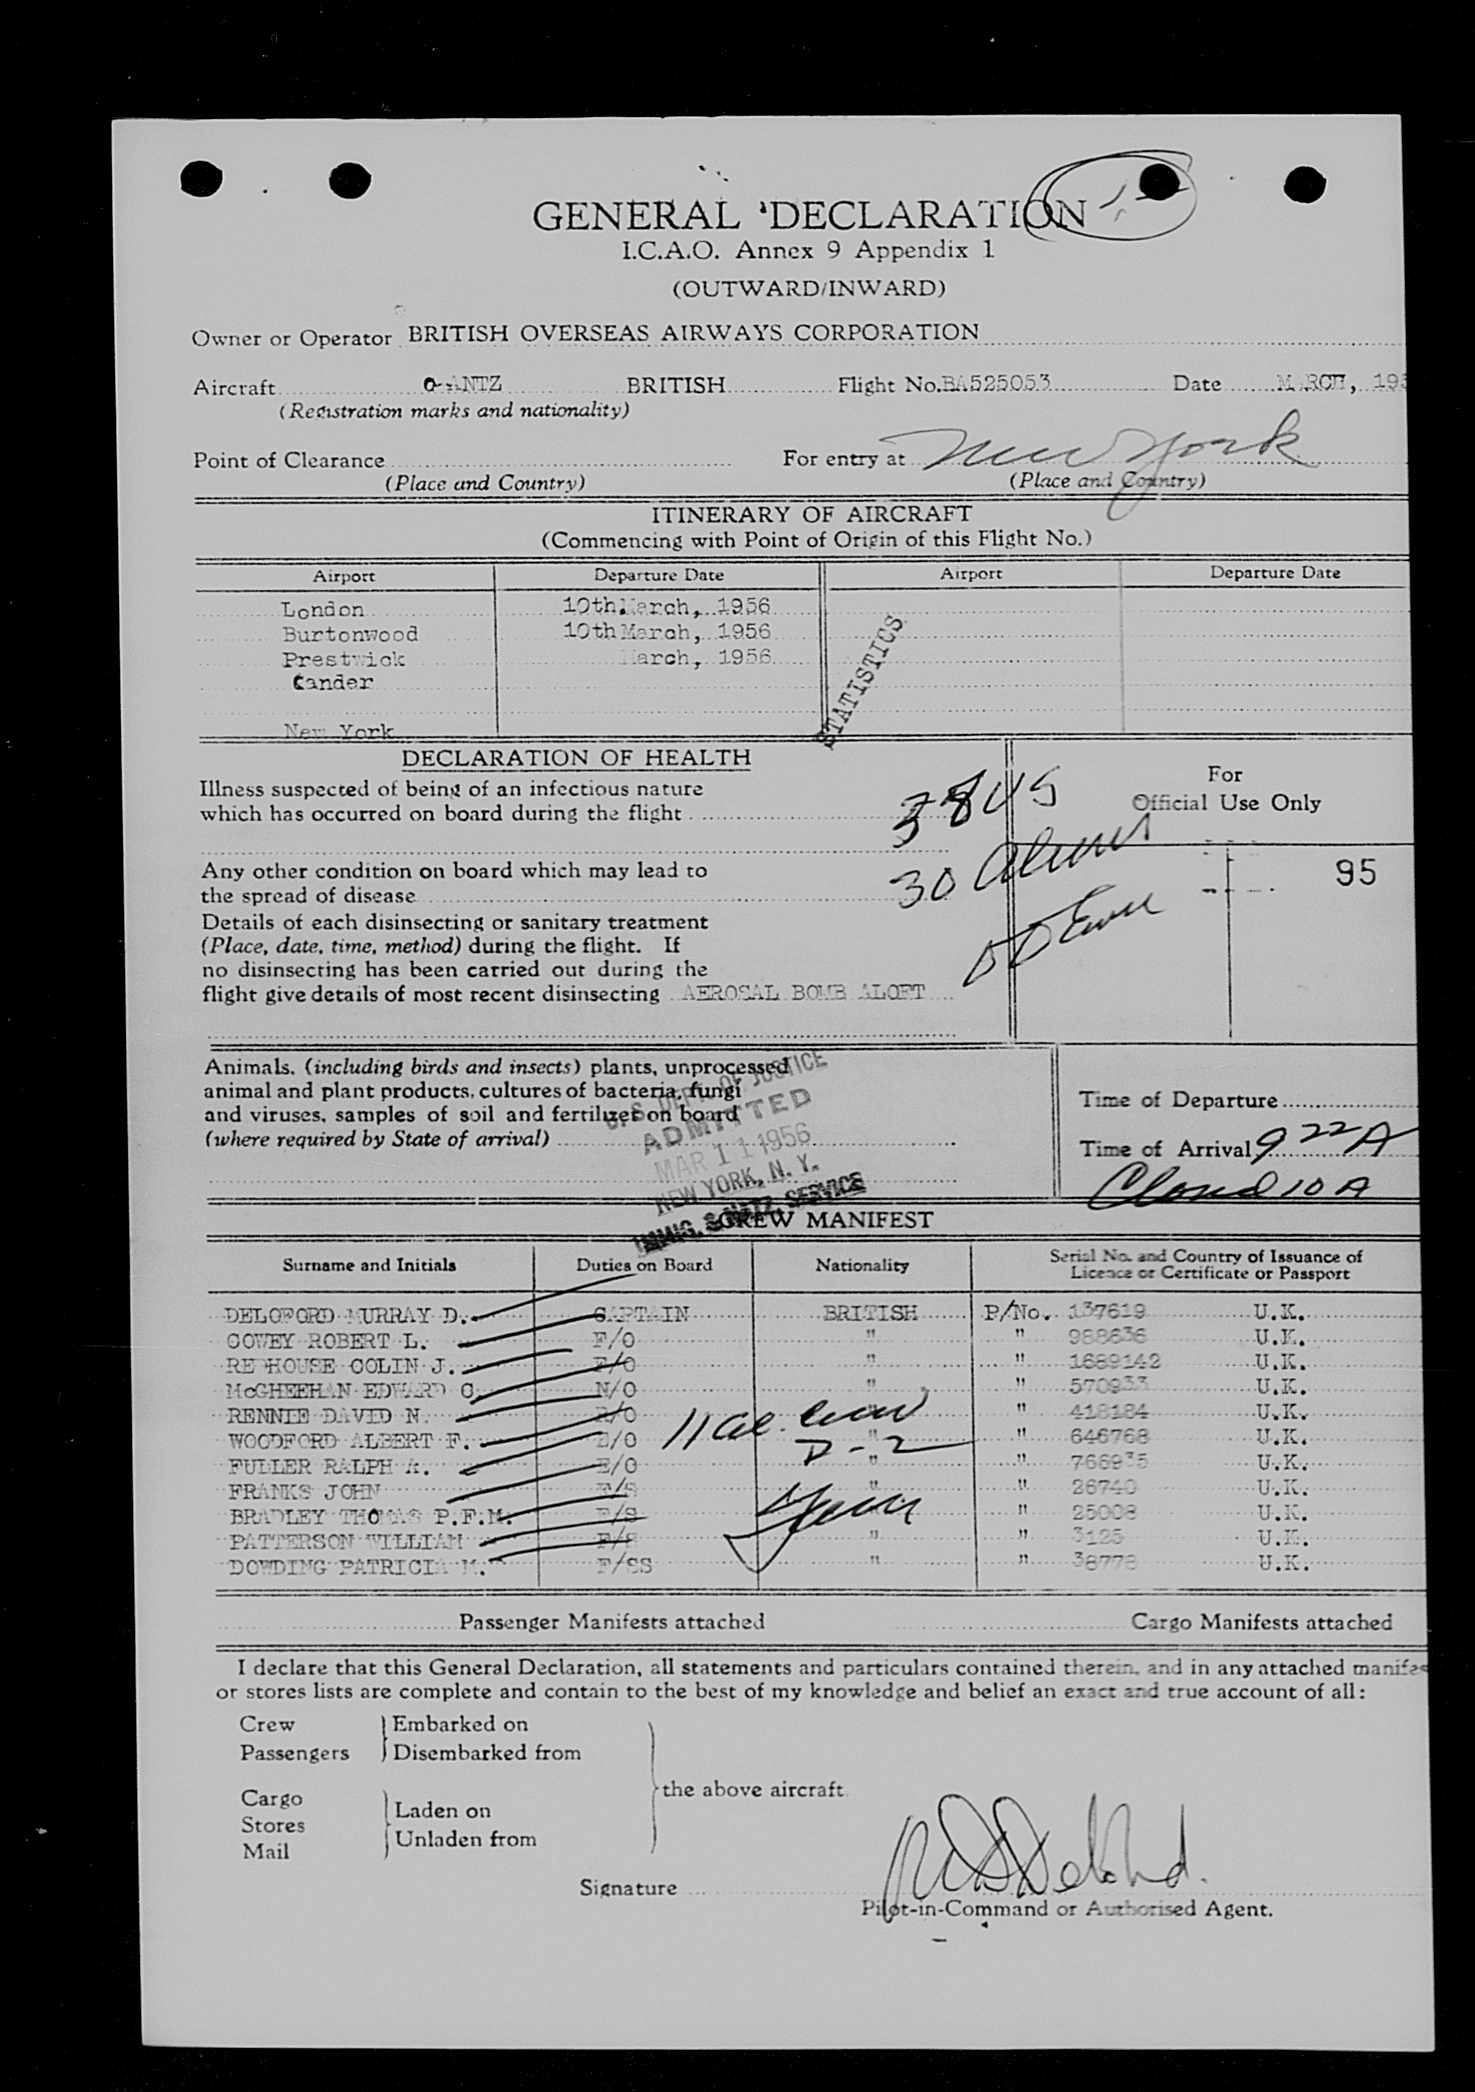 GENERAL DECLARATION
I.C.A.O. Annex 9 Appendix 1
(OUTWARD/INWARD)
Owner or Operator BRITISH OVERSEAS AIRWAYS CORPORATION
Aircraft G-ANTZ BRITISH Flight No. BA525053 Date MARCH, 195
(Registration marks and nationality)
Point of Clearance For entry at New York
(Place and Country) (Place and Country)
ITINERARY OF AIRCRAFT
(Commencing with Point of Origin of this Flight No.)
Airport Departure Date Airport Departure Date
London 10th March, 1956
Burtonwood 10th March, 1956
Prestwick March, 1956
Gander
New York
STATISTICS
DECLARATION OF HEALTH
Illness suspected of being of an infectious nature
which has occurred on board during the flight
38 US
For
Official Use Only
Any other condition on board which may lead to
the spread of disease
30 Aliens
95
Details of each disinsecting or sanitary treatment
(Place, date, time, method) during the flight. If
no disinsecting has been carried out during the
flight give details of most recent disinsecting AEROSAL BOMB ALOFT
Animals, (including birds and insects) plants, unprocessed
animal and plant products, cultures of bacteria, fungi
and viruses, samples of soil and fertilizer on board
(where required by State of arrival)
U. S. DEPT. OF JUSTICE
ADMITTED
MAR 11 1956
NEW YORK, N. Y.
IMMIG. & NATZ. SERVICE
Time of Departure
Time of Arrival 9 22 A
10 A
CREW MANIFEST
Surname and Initials Duties on Board Nationality Serial No. and Country of Issuance of
Licence or Certificate or Passport
DELOFORD MURRAY D. CAPTAIN BRITISH P/No. 137619 U.K.
COVEY ROBERT L. F/O " " 988636 U.K.
REDHOUSE COLIN J. F/O " " 1689142 U.K.
McGHEEHAN EDWARD C. N/O " " 570933 U.K.
RENNIE DAVID N. R/O " " 418184 U.K.
WOODFORD ALBERT F. E/O " " 646768 U.K.
FULLER RALPH A. E/O " " 766935 U.K.
FRANKS JOHN F/S " " 26740 U.K.
BRADLEY THOMAS P.F.M. F/S " " 25008 U.K.
PATTERSON WILLIAM F/S " " 3125 U.K.
DOWDING PATRICIA M. F/SS " " 38778 U.K.
11 al. crew
D-2
Passenger Manifests attached Cargo Manifests attached
I declare that this General Declaration, all statements and particulars contained therein, and in any attached manifes
or stores lists are complete and contain to the best of my knowledge and belief an exact and true account of all:
Crew Embarked on
Passengers Disembarked from
the above aircraft
Cargo Laden on
Stores
Mail Unladen from
Signature
Pilot-in-Command or Authorised Agent.